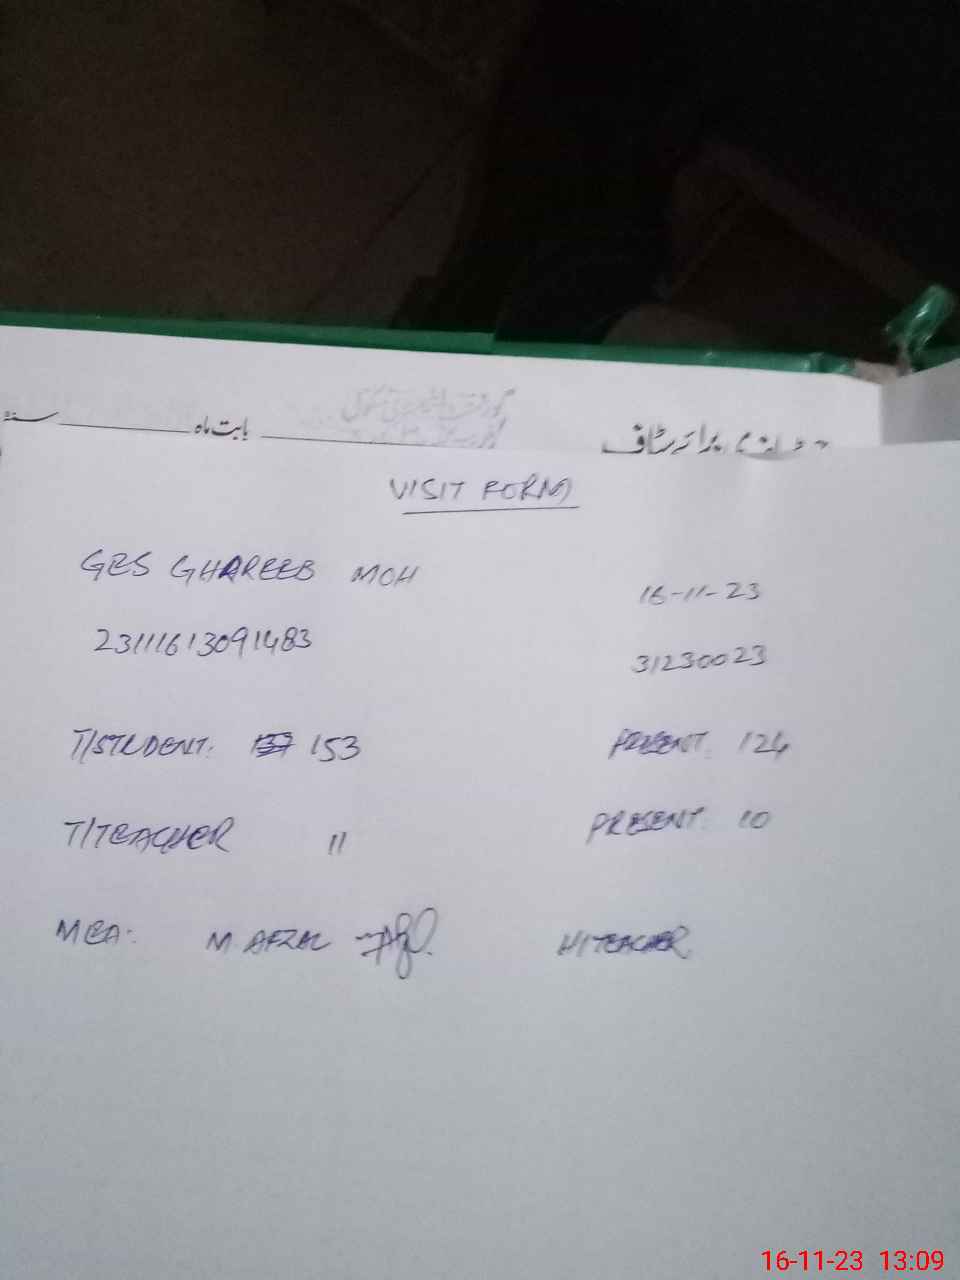 بابت ماہ
سٹاف
VISIT FORM
GES GHAREEB MOH
16-11-23
23111613091483
31230023
T/STUDENT: 137 153 PRESENT: 124
T/TEACHER 11 PRESENT: 10
MEA: M AFZAL H/TEACHER
16-11-23 13:09